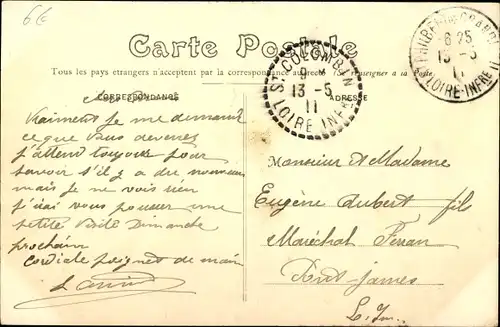 66
Carte Postale
Tous les pays étrangers n'acceptent par la correspondance au recto. Se renseigner a la Poste
CORRESPONDANCE
ADRESSE
ST COLOMBIN
9
13 - 5
11
LOIRE INFRE
6 25
13 - 5
11
LOIRE-INFRE
Vraiment je me demande
ce que vous devenez
j'attend toujours pour
savoir s'il y a du nouveau
mais je ne vois rien
j'irai vous pousser une
petite visite Dimanche
prochain
Cordiale poignet de main
Monsieur et Madame
Eugène Aubert fils
Maréchal Ferran
Pont-James
L. Inf